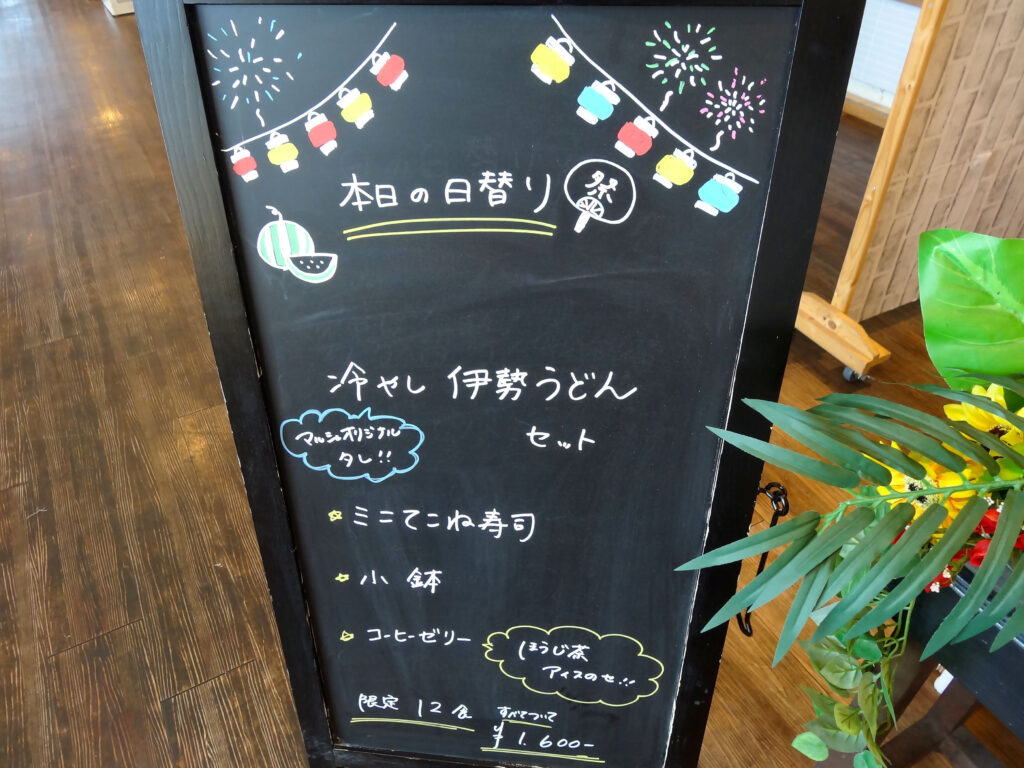 本日の日替り
祭
冷やし 伊勢うどん
セット
マルシェオリジナル
タレ!!
ミニてこね寿司
小鉢
コーヒーゼリー
ほうじ茶
アイスのせ!!
限定 12食
すべてついて
¥1.600-